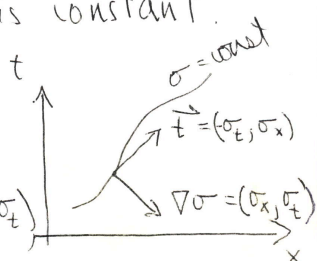 is constant.
t
σ = const
t⃗ = (-σ_t, σ_x)
σ_t)
∇σ = (σ_x, σ_t)
x